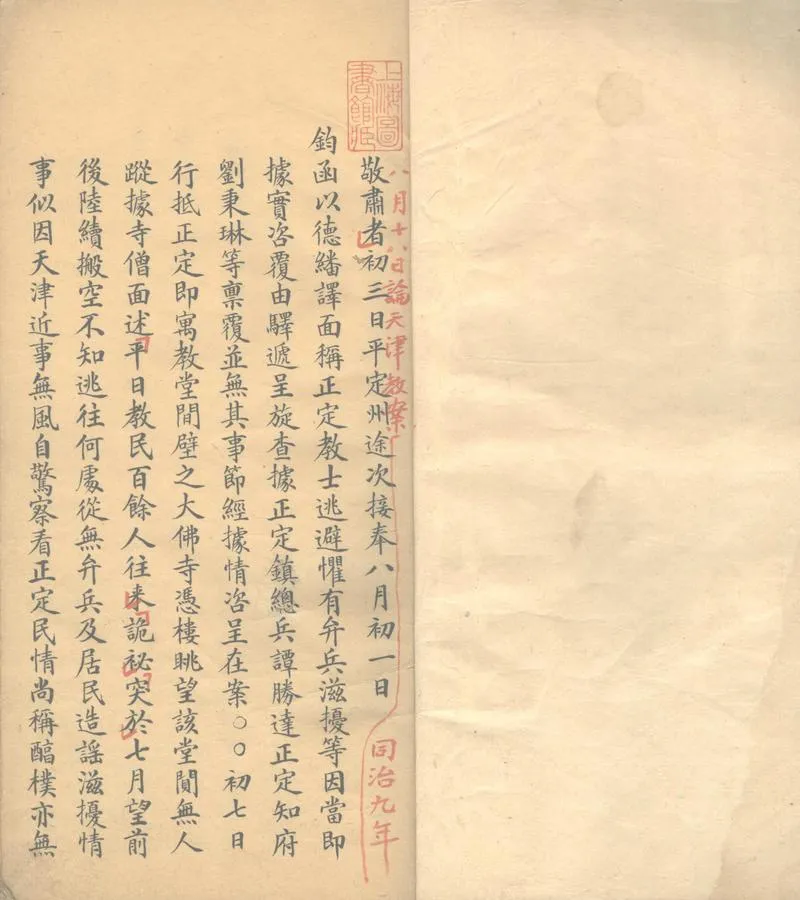 上海圖書館藏
八月十八日論天津教案
同治九年
敬肅者初三日平定州途次接奉八月初一日
鈞函以德繙譯面稱正定教士逃避懼有弁兵滋擾等因當即
據實咨覆由驛遞呈旋查據正定鎮總兵譚勝達正定知府
劉秉琳等禀覆並無其事節經據情咨呈在案〇〇初七日
行抵正定即寓教堂間壁之大佛寺憑樓眺望該堂閴無人
蹤據寺僧面述平日教民百餘人往来詭祕突於七月望前
後陸續搬空不知逃往何處從無弁兵及居民造謠滋擾情
事似因天津近事無風自驚察看正定民情尚稱醕樸亦無